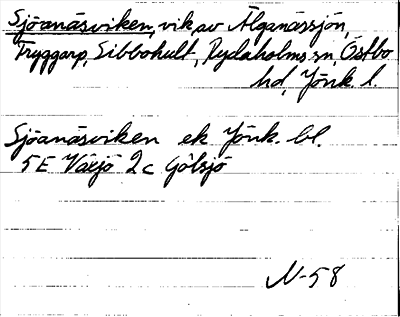 Sjöanäsviken, vik av Älganässjön,
Tryggarp, Sibbohult, Rydaholms sn, Östbo
hd, Jönk. l.
Sjöanäsviken ek Jönk. bl.
5E Växjö 2c Götsjö
N-58